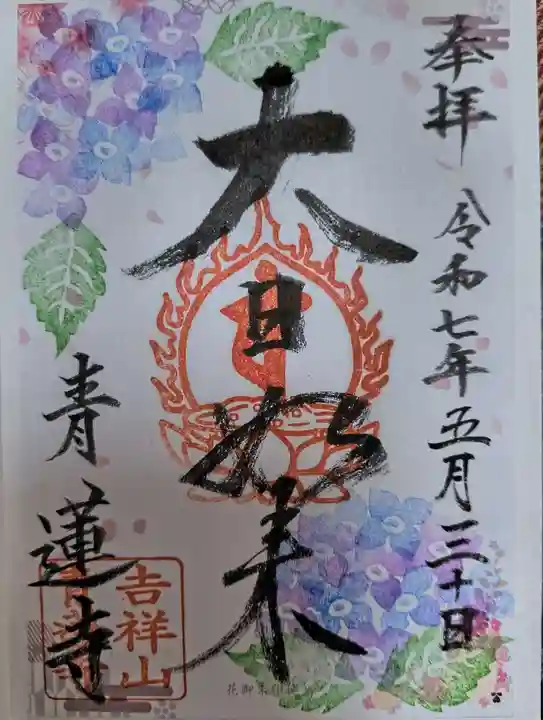 奉拝 令和七年五月三十日
大日如来
青蓮寺
吉祥山
青蓮寺